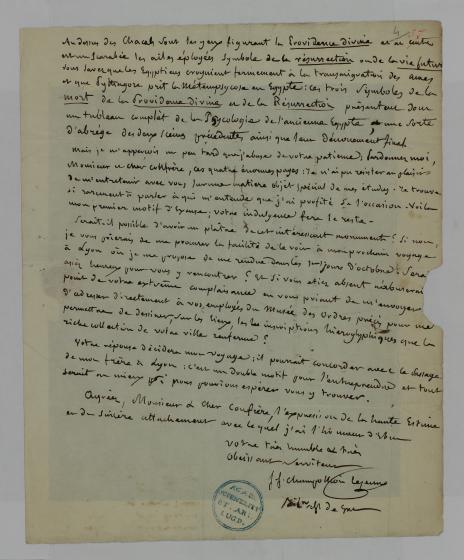 Au dessus des Chacals sont les yeux figurant la Providence divine et au centre
est un Scarabée les ailes éployées Symbole de la résurrection ou de la vie future
vous savez que les Egyptiens croyaient fermement à la transmigration des ames
et que Pythagore prit la Métempsycose en Egypte: ces trois Symboles de la
mort de la Providence divine et de la Résurrection présentent donc
un tableau complet de la Psycologie de l'ancienne Egypte, et une sorte
d'abrégé des deux scènes précédentes ainsi que leur Dénouement final
mais je m'apperçois un peu tard que j'abuse de votre patience. Pardonnez moi,
Monsieur et cher confrère, ces quatre énormes pages: Je n'ai pu resister au plaisir
de m'entretenir avec vous sur une matière objet spécial de mes études. Je trouve
si rarement à parler à qui m'entende que j'ai profité de l'occasion. Voilà
mon premier motif d'excuse, votre indulgence fera le reste.
Serait-il possible d'avoir un plâtre de cet intéressant monument? Si non,
je vous prierais de me procurer la facilité de le voir à mon prochain voyage
à Lyon où je me propose de me rendre dans les 1ers jours d'octobre. Serai
assez heureux pour vous y rencontrer? Et si vous étiez absent abuserais
point de votre extrême complaisance en vous priant de m'envoyer
d'adresser directement à vos employés du Musée des ordres précis pour me
permettre de dessiner, sur les lieux, les inscriptions hieroglyphiques que la
riche collection de votre ville renferme?
Votre réponse décidera mon voyage; il pourrait concorder avec le passage
de mon frère à Lyon: c'est un double motif pour l'entreprendre et tout
serait au mieux si nous pouvions espérer vous y trouver.
Agréez, Monsieur & cher Confrère, l'expression de la haute Estime
et du sincère attachement avec lequel j'ai l'honneur d'être
votre très humble & très
obéissant serviteur
J. f. champollion le jeune
de Gre
ACAD.
SCIENT. LITT.
ET ART.
LUGD.